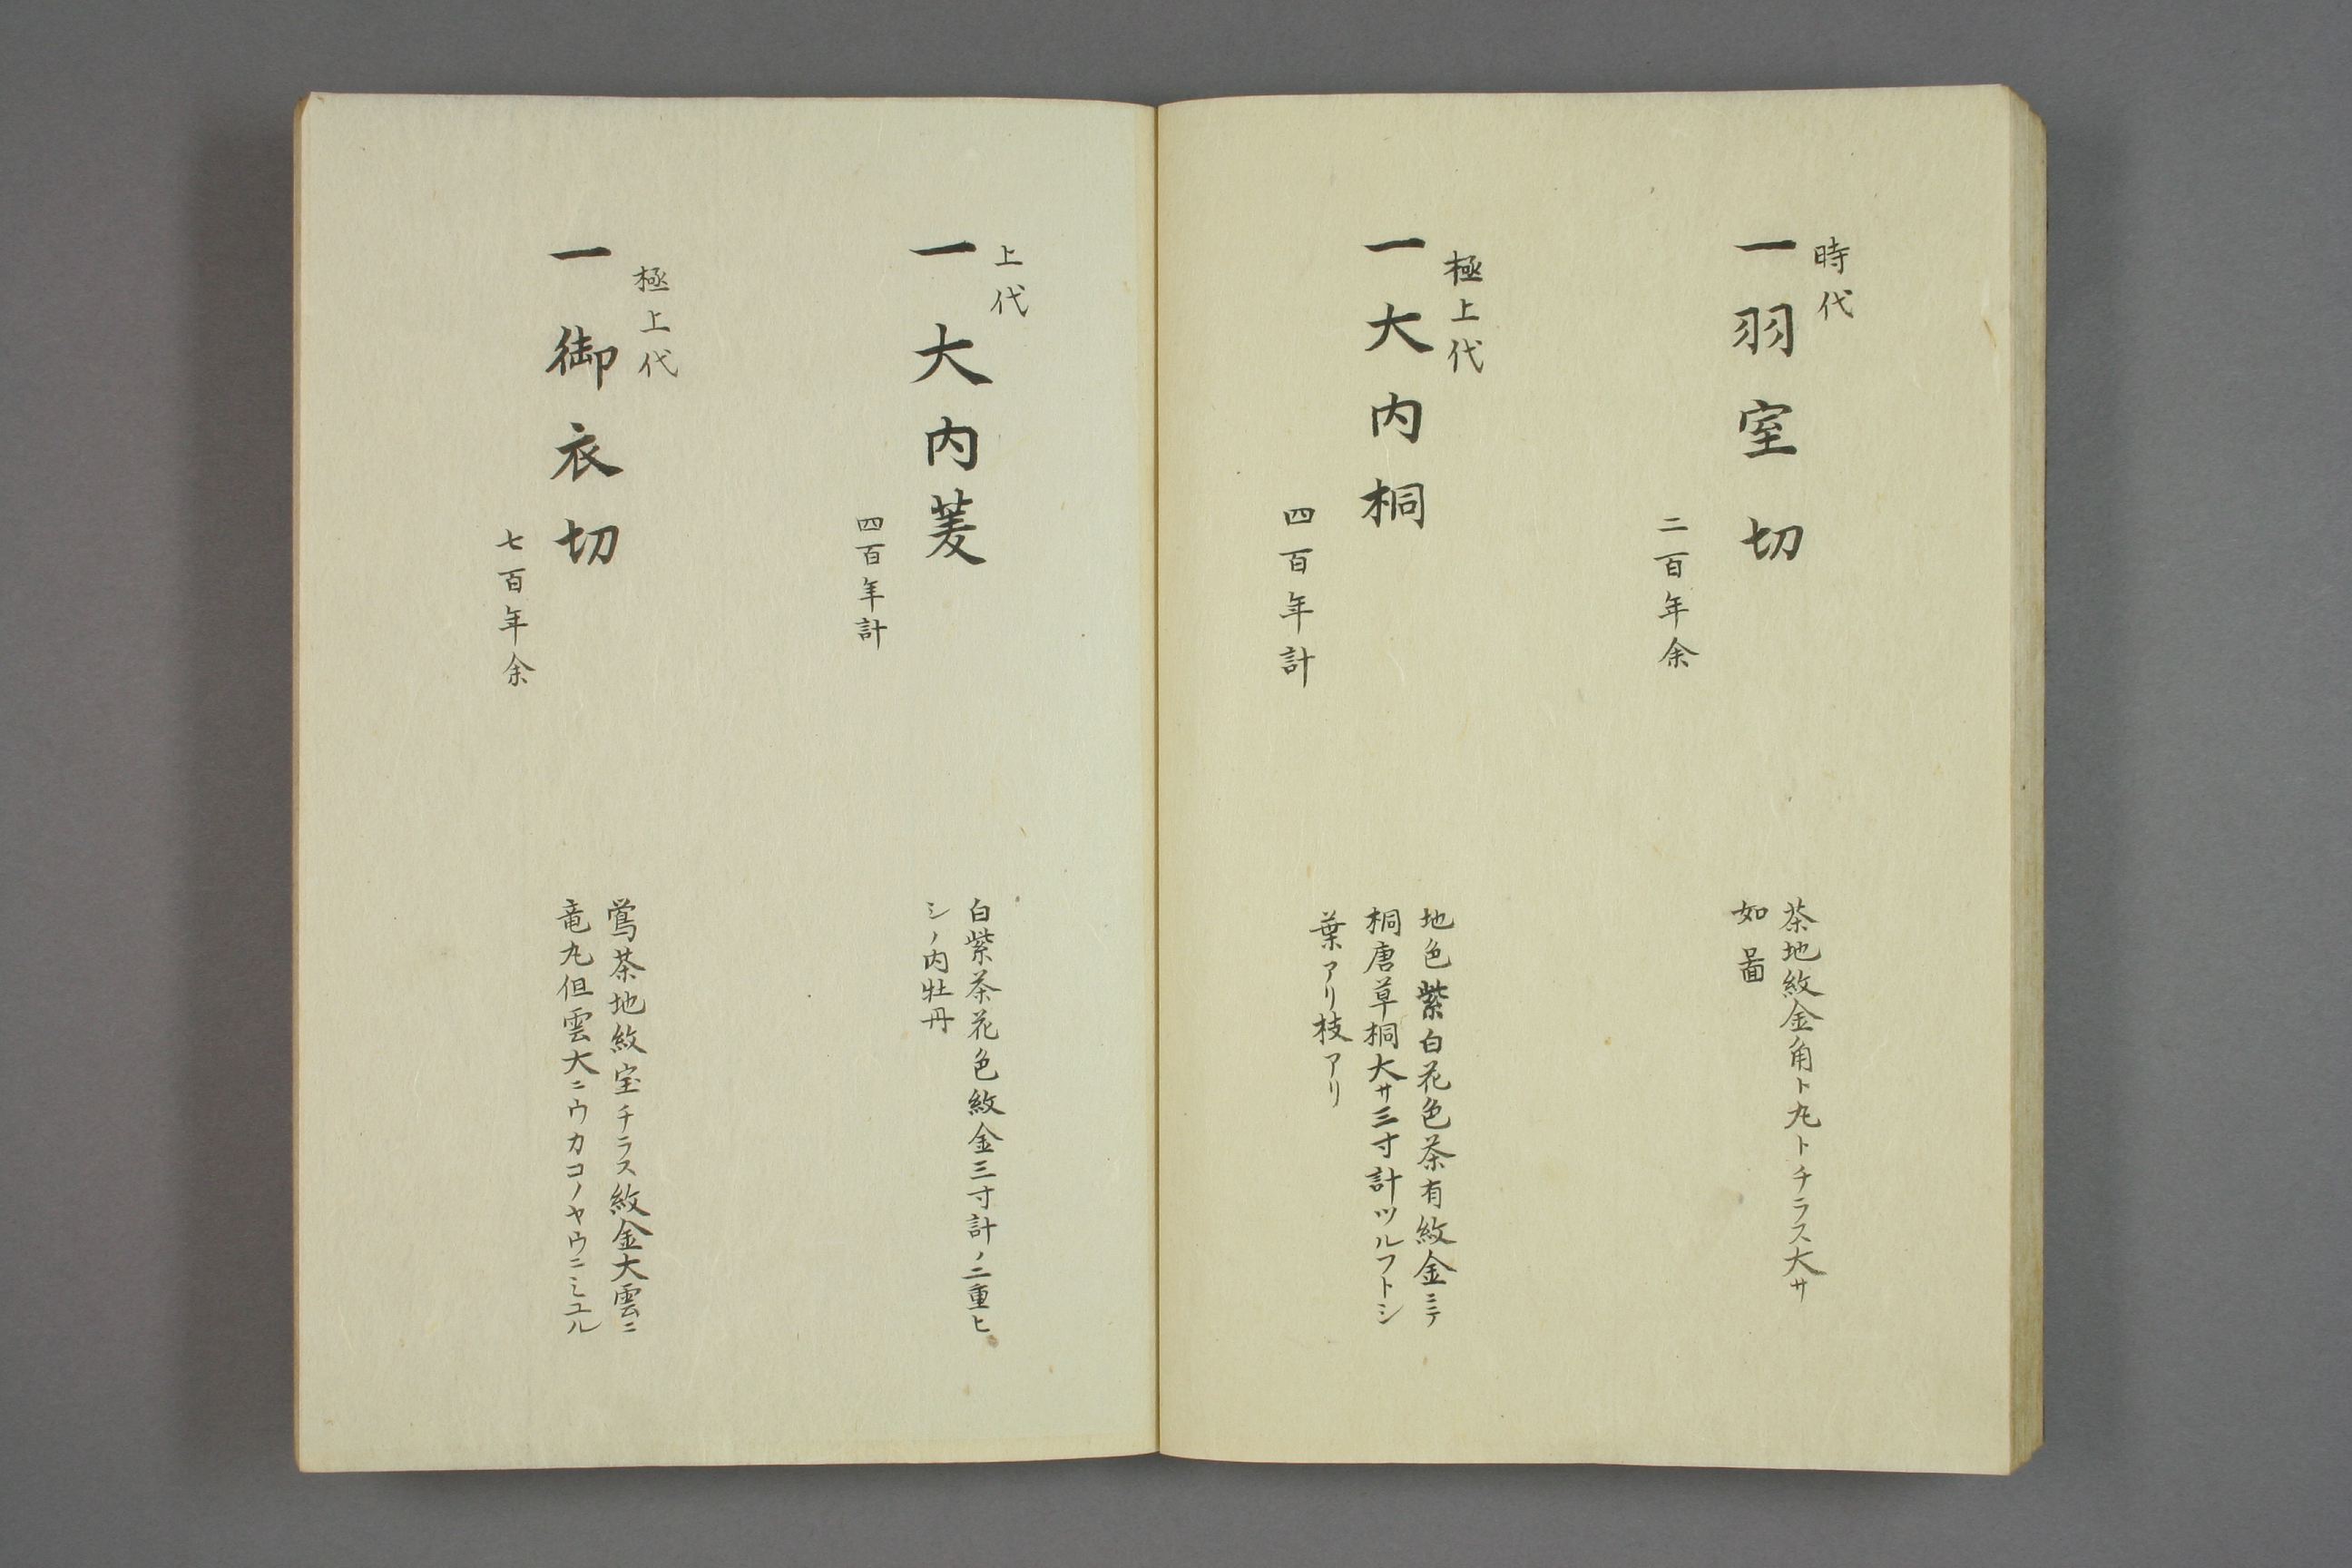 時代
一羽室切
二百年余
茶地紋金角ト丸トチラス大サ
如啚
極上代
一大内桐
四百年計
地色紫白花色茶有紋金ニテ
桐唐草桐大サ三寸計ツルフトシ
葉アリ枝アリ
上代
一大内菱
四百年計
白紫茶花色紋金三寸計ノ二重ヒ
シノ内牡丹
極上代
一御衣切
七百年余
鶯茶地紋宝チラス紋金大雲ニ
竜丸但雲大ニウカコノヤウニミユル